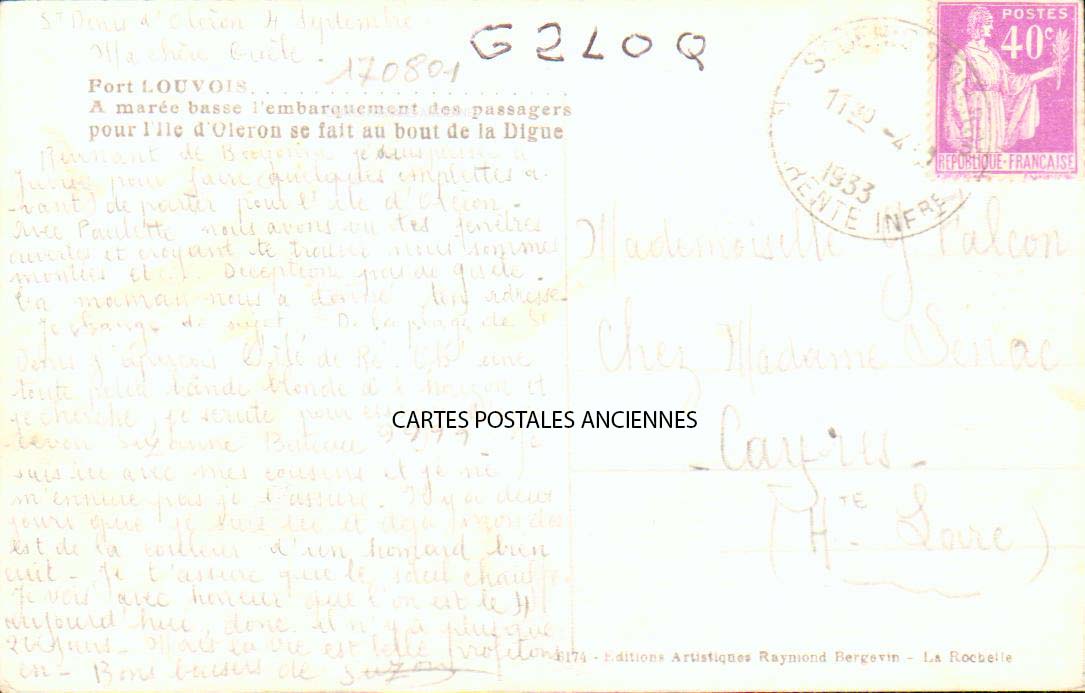 St Denis d'Oleron 4 Septembre
Ma chère
G2LOQ
170801
Fort LOUVOIS
A marée basse l'embarquement des passagers
pour l'Ile d'Oleron se fait au bout de la Digue
POSTES
40c
REPUBLIQUE-FRANÇAISE
1130 -4
1933
RENTE INFRE
pour faire quelques emplettes a-
-vant de partir pour l'île d'Oléron.
Avec Paulette nous avons vu des fenêtres
ouvertes et croyant te trouver nous sommes
montées etc. Déception pas de gisèle.
Ta maman nous a donné ton adresse.
Je change de sujet. De la plage de St
Denis j'aperçois l'île de Ré. C'est une
toute petite bande blonde à l'horizon et
je cherche, je scrute pour
Suzanne Je
suis ici avec mes cousins et je ne
m'ennuie pas je t'assure. Il y a deux
jours que je suis ici et déjà mon dos
est de la couleur d'un homard bien
cuit - Je t'assure que le soleil chauffe.
Je vois avec horreur que l'on est le 4
aujourd'hui, donc il n'y a plus que
26 jours. Mais la vie est belle profitons
en - Bons baisers de Suzon
Mademoiselle G. Falcon
Chez Madame Sénac
- Cayres -
(Hte Loire)
CARTES POSTALES ANCIENNES
6174 - Editions Artistiques Raymond Bergevin - La Rochelle